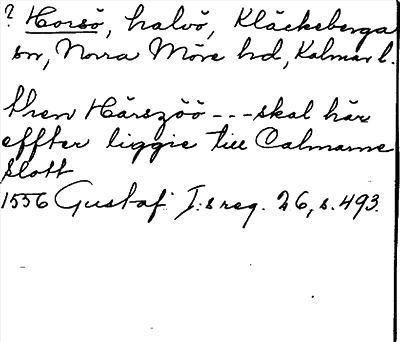 ? Horsö, halvö, Kläckeberga
sn, Norra Möre hd, Kalmar l.
then Hårszöö - - - skal här
effter liggie till Calmarne
Slott
1556 Gustaf I:s reg. 26, s. 493.